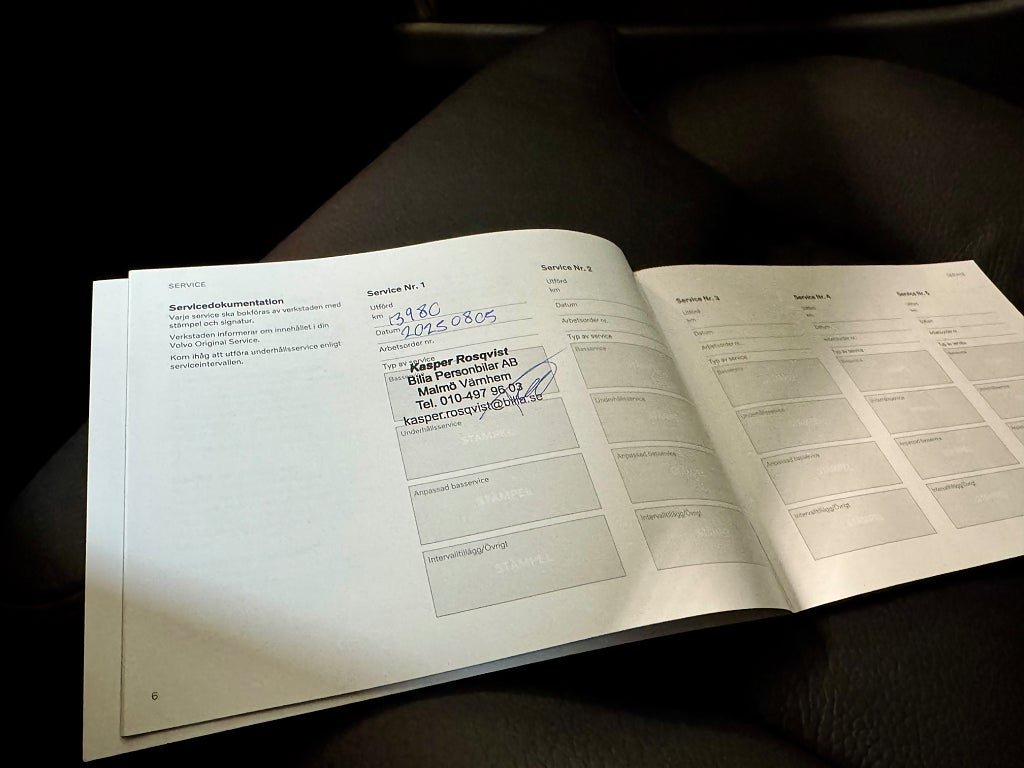 SERVICE
Servicedokumentation
Varje service ska bokföras av verkstaden med
stämpel och signatur.
Verkstaden informerar om innehållet i din
Volvo Original Service.
Kom ihåg att utföra underhållsservice enligt
serviceintervallen.
6
Service Nr. 1
Utförd
km 13980
Datum 20250805
Arbetsorder nr.
Typ av service
Kasper Rosqvist
Bilia Personbilar AB
Malmö Värnhem
Tel. 010-497 96 03
kasper.rosqvist@bilia.se
Underhållsservice
STÄMPEL
Anpassad basservice
STÄMPEL
Intervalltillägg/Övrigt
STÄMPEL
Service Nr. 2
Utförd
km
Datum
Arbetsorder nr.
Typ av service
Basservice
Underhållsservice
Anpassad basservice
Intervalltillägg/Övrigt
SERVICE
Service Nr. 3
Utförd
km
Datum
Arbetsorder nr.
Typ av service
Basservice
Underhållsservice
Anpassad basservice
Intervalltillägg/Övrigt
Service Nr. 4
Utförd
km
Datum
Arbetsorder nr.
Typ av service
Basservice
Underhållsservice
Anpassad basservice
Intervalltillägg/Övrigt
Service Nr. 5
Utförd
km
Datum
Arbetsorder nr.
Typ av service